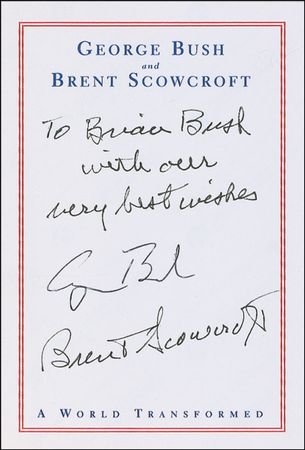 GEORGE BUSH
and
BRENT SCOWCROFT
To Brian Bush
with our
very best wishes
G Bush
Brent Scowcroft
A WORLD TRANSFORMED